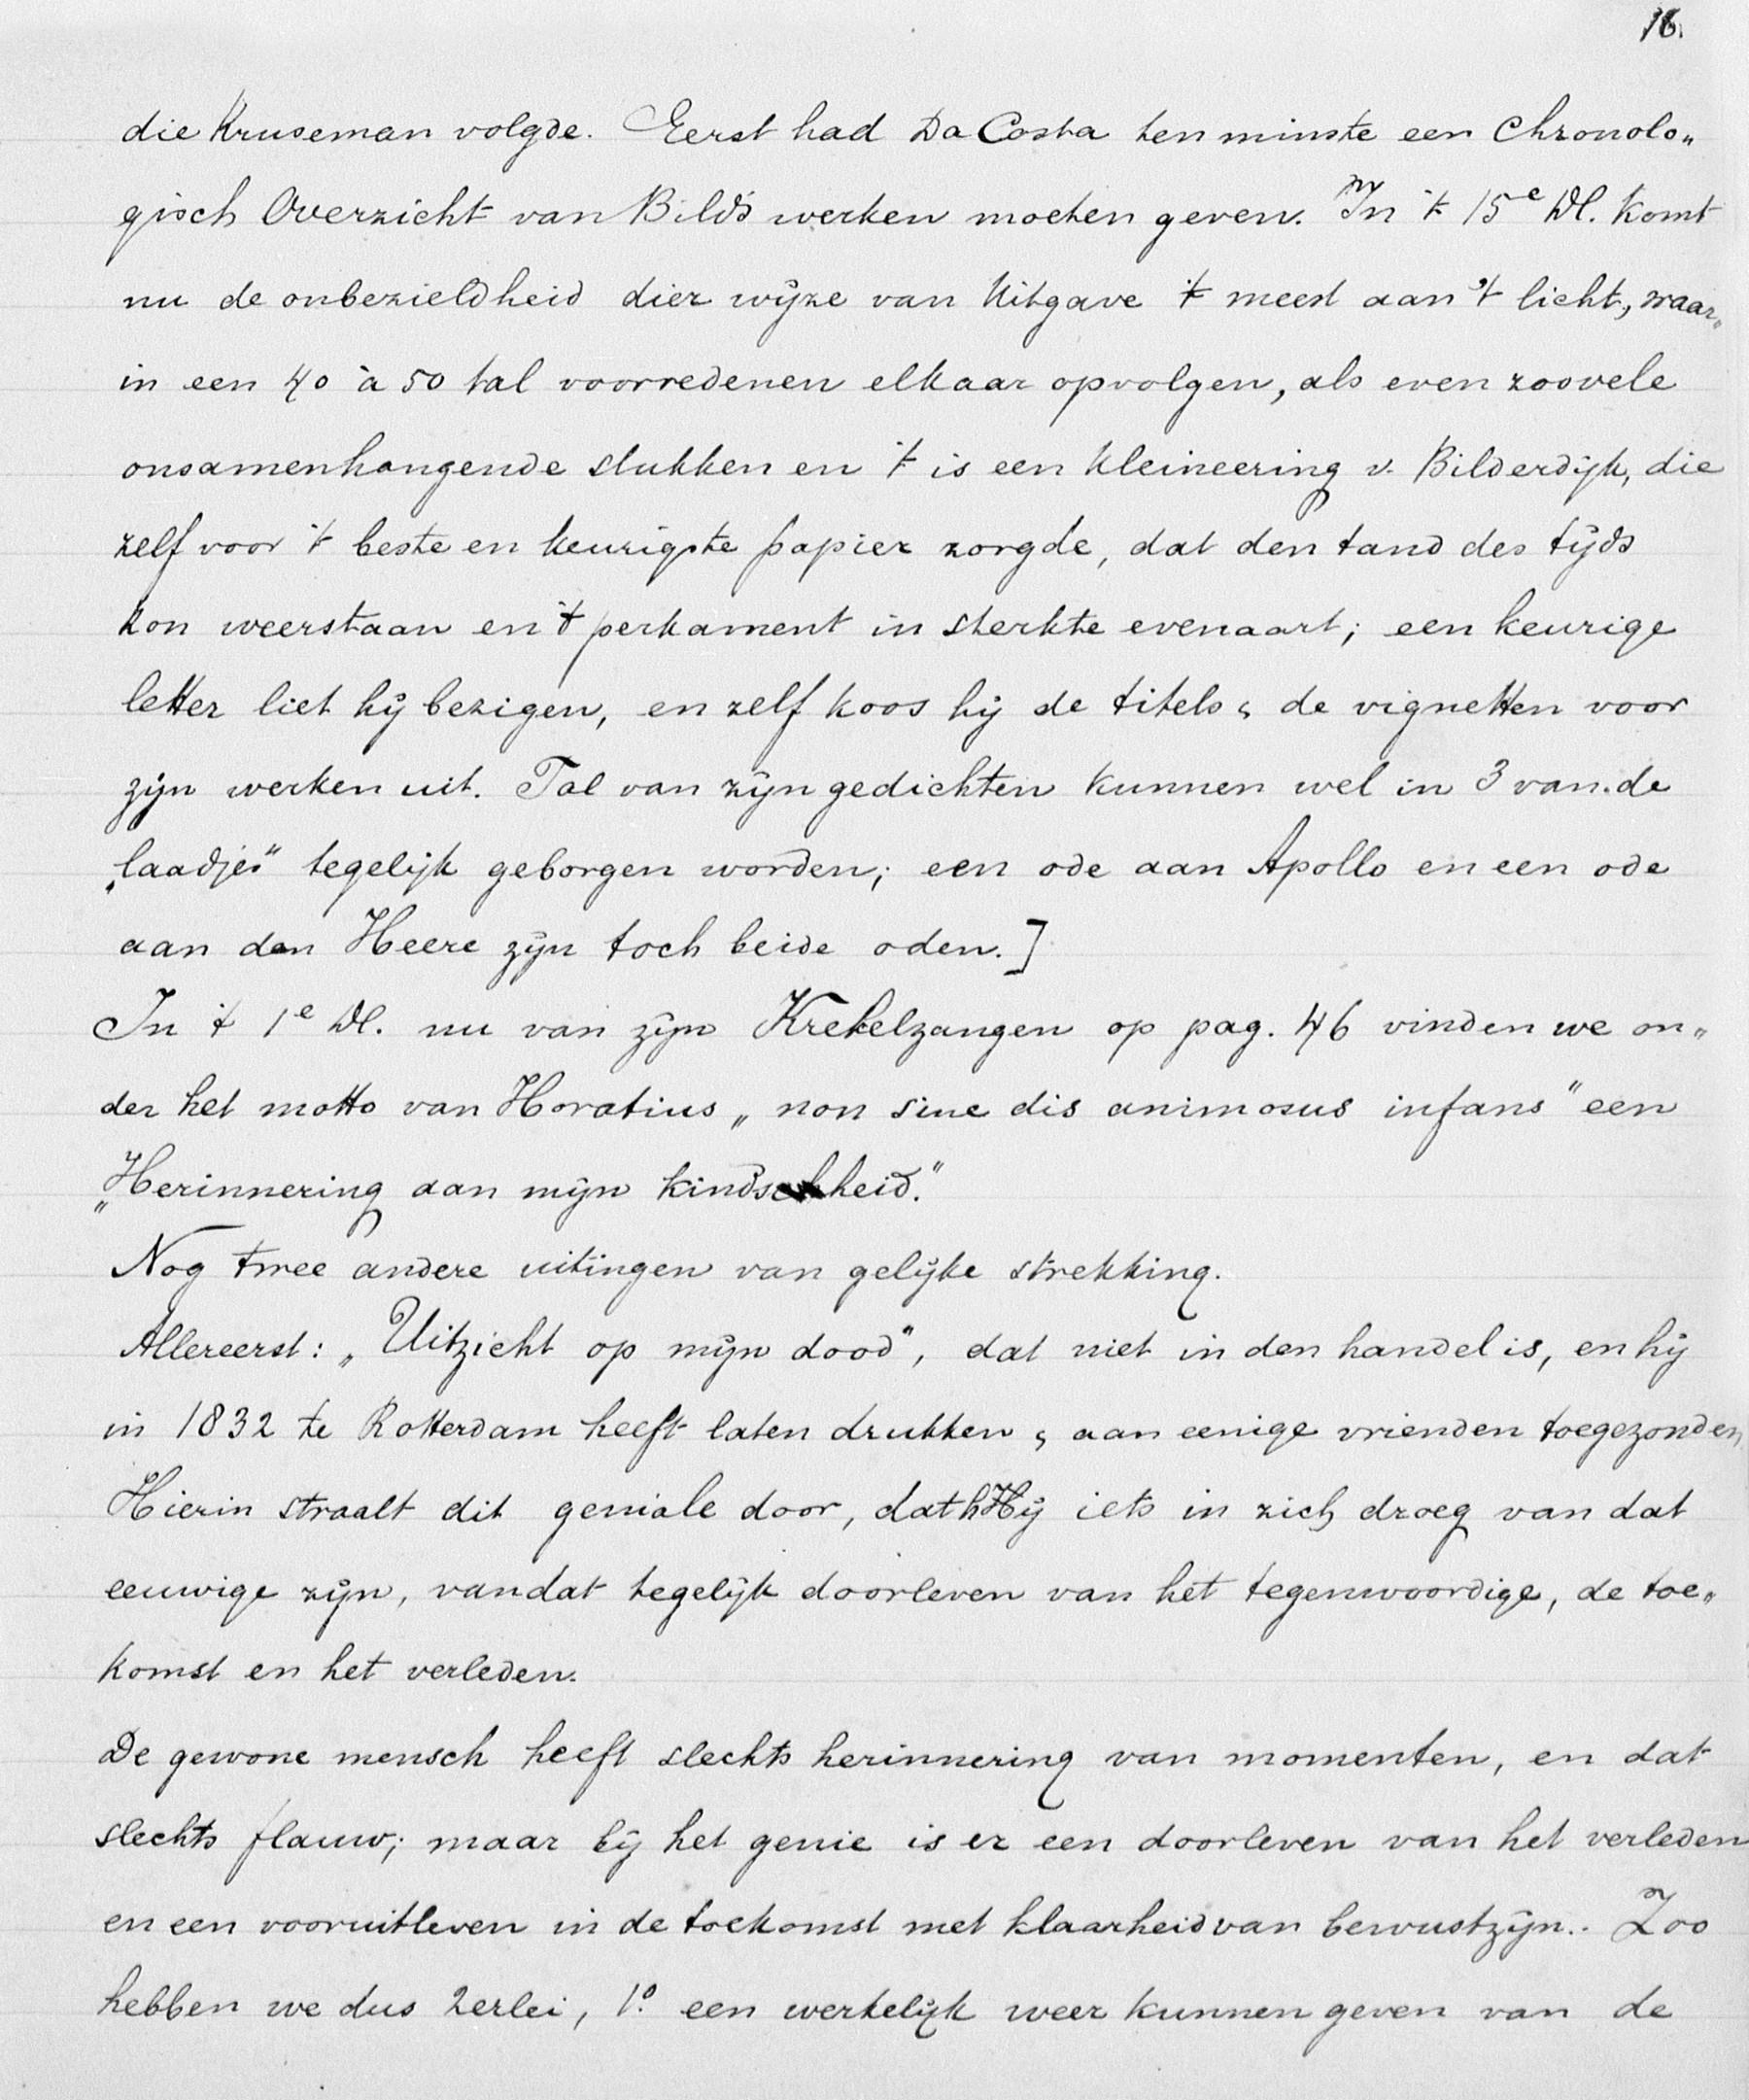 16.
die Kruseman volgde. Eerst had Da Costa ten minste een Chronolo„
gisch Overzicht van Bild's werken moeten geven. In 't 15e Dl. komt
nu de onbezieldheid dier wijze van Uitgave 't meest aan 't licht, waar„
in een 40 à 50 tal voorredenen elkaar opvolgen, als even zoovele
onsamenhangende stukken en 't is een kleineering v. Bilderdijk, die
zelf voor 't beste en keurigste papier zorgde, dat den tand des tijds
kon weerstaan en 't perkament in sterkte evenaart; een keurige
letter liet hij bezigen, en zelf koos hij de titels & de vignetten voor
zijn werken uit. Tal van zijn gedichten kunnen wel in 3 van de
„laadjes" tegelijk geborgen worden; een ode aan Apollo en een ode
aan den Heere zijn toch beide oden.]
In 't 1e Dl. nu van zijn Krekelzangen op pag. 46 vinden we on„
der het motto van Horatius „non sine dis animosus infans" een
„Herinnering aan mijn kindsheid."
Nog twee andere uitingen van gelijke strekking.
Allereerst: „Uitzicht op mijn dood", dat niet in den handel is, en hij
in 1832 te Rotterdam heeft laten drukken & aan eenige vrienden toegezonden
Hierin straalt dit geniale door, dat hij iets in zich droeg van dat
eeuwige zijn, van dat tegelijk doorleven van het tegenwoordige, de toe„
komst en het verleden.
De gewone mensch heeft slechts herinnering van momenten, en dat
slechts flauw; maar bij het genie is er een doorleven van het verleden
en een vooruitleven in de toekomst met klaarheid van bewustzijn. Zoo
hebben we dus 2erlei, 1o een werkelijk weer kunnen geven van de